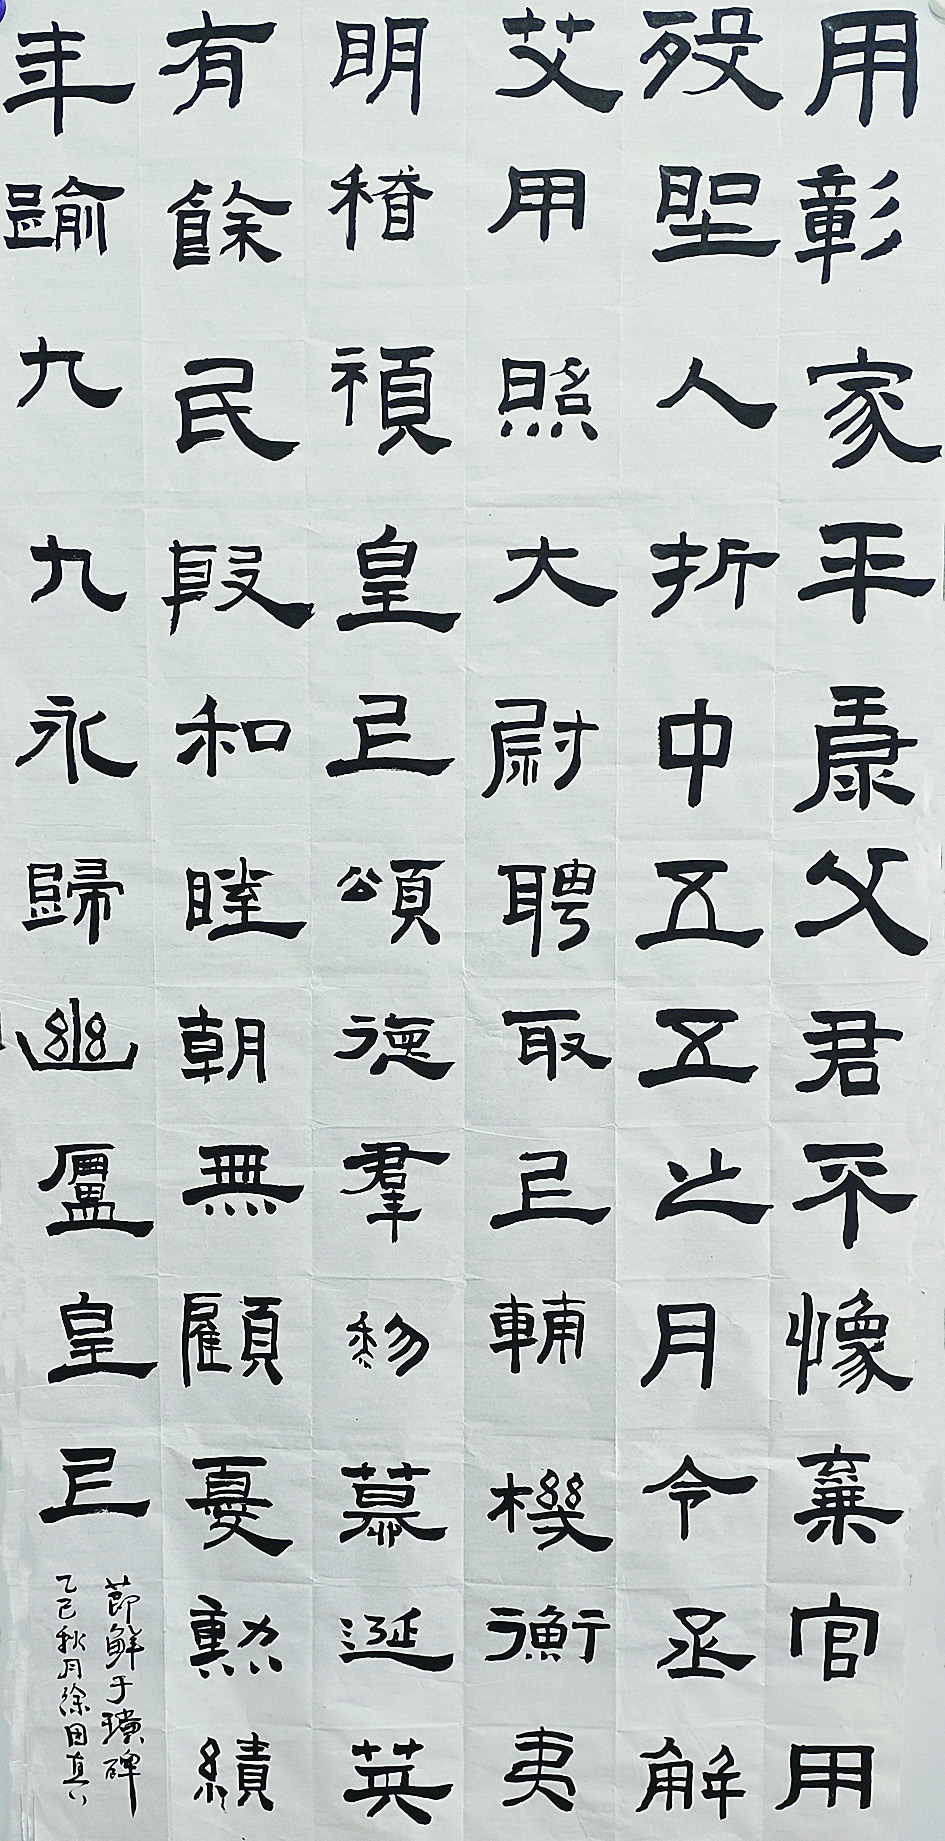 用彰家平康父君不像棄官用
歿聖人折中五五之月令丞解
艾用照大尉聘取上輔機衡夷
明稽禎皇上頌德羣物慕涎英
有餘民殷和睦朝無顧憂勳績
年踰九九永歸幽廬皇上
節鮮于璜碑
乙巳秋月徐田真